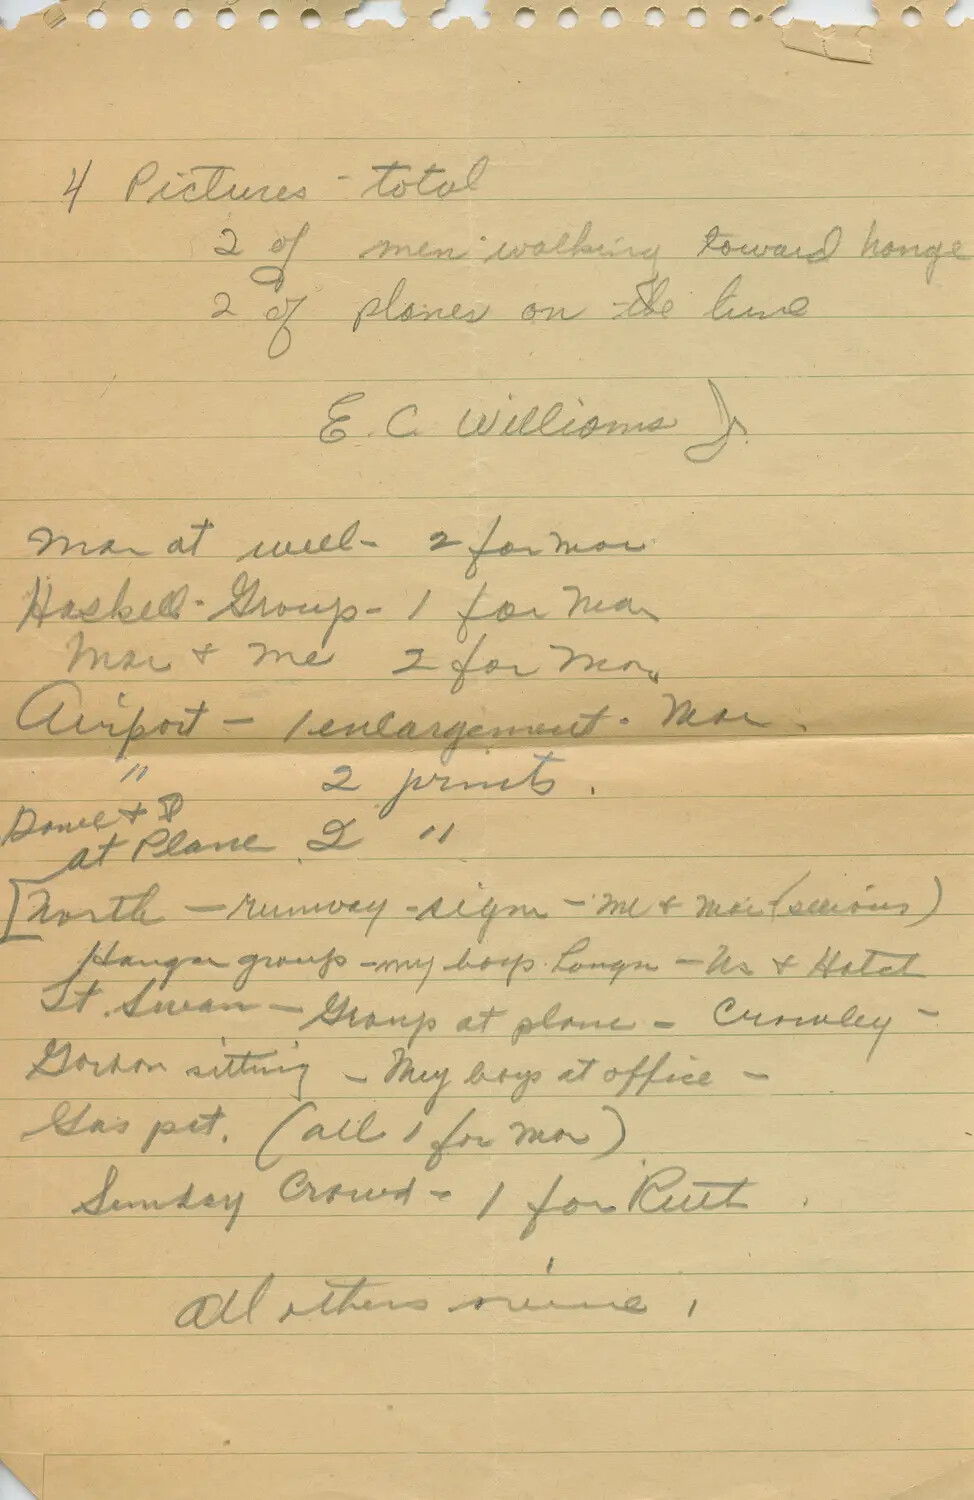 4 Pictures - total
2 of men walking toward hange
2 of planes on the line
E. C. Williams Jr.
Mar at well - 2 for mar
Haskell - Group - 1 for Mar
Mar & me 2 for Mar
Airport - 1 enlargement - Mar.
" 2 prints.
&
at Plane 2 "
[North - runway - sign - me & Mar (serious)
Hangar group - my boys - Us & Hotel
Lt. Swan - Group at plane - Crowley -
Gordon sitting - My boys at office -
Gas pit. (all 1 for mar)
Sunday Crowd - 1 for Ruth
All others mine.